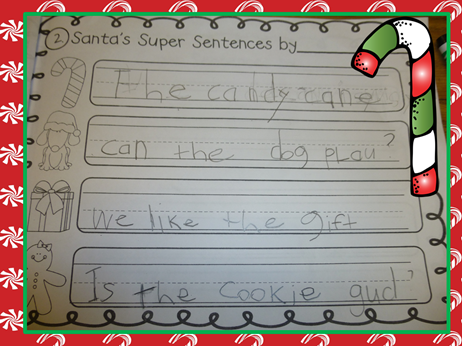 2 Santa's Super Sentences by
The candy cane
can the dog play?
We like the gift
Is the cookie gud?